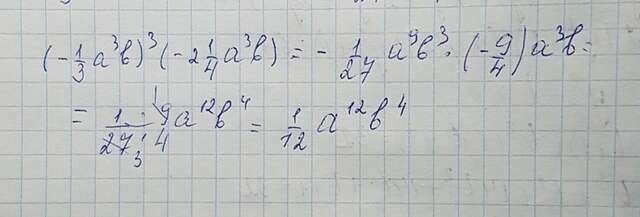 (-1/3 a³b)³(-2 1/4 a³b) = - 1/27 a⁹b³ · (-9/4) a³b =
= 1·9/27·4 a¹²b⁴ = 1/12 a¹²b⁴